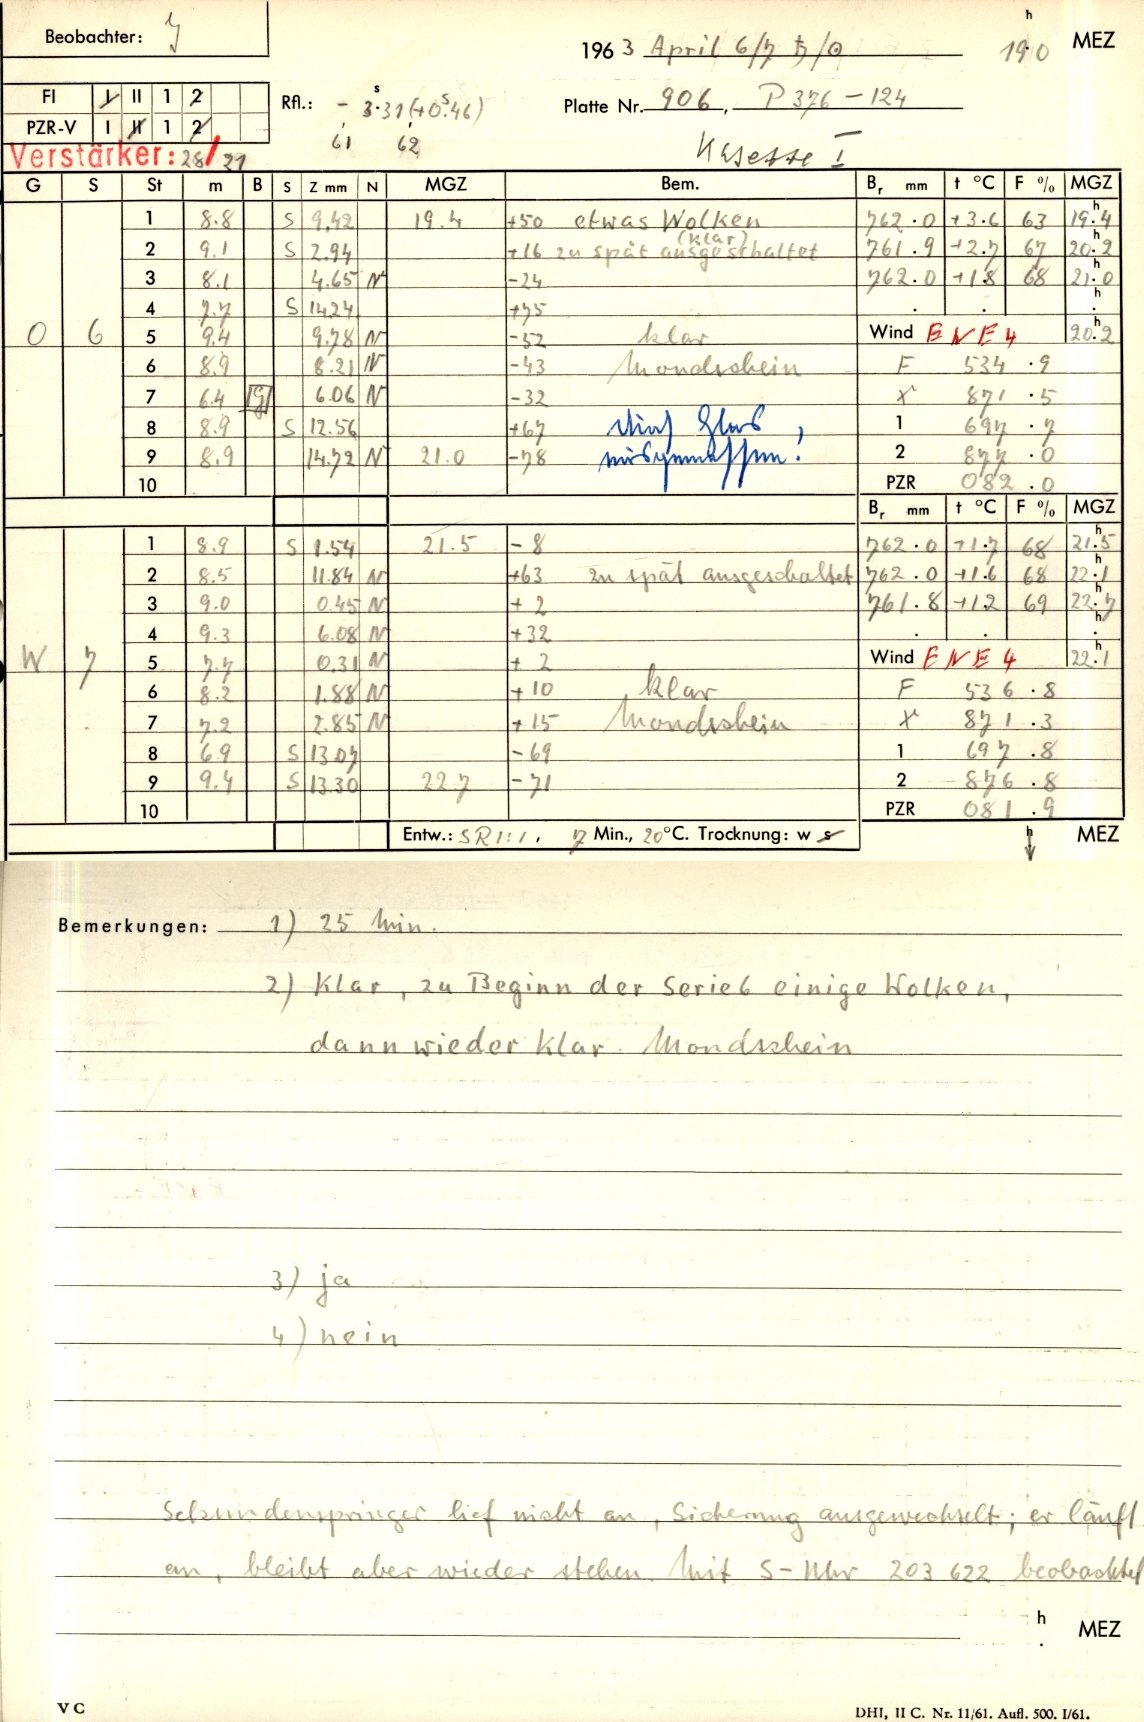 Beobachter: y
1963 April 6/7 ♄/☉ 19.0 h MEZ
FI I II 1 2
PZR-V I II 1 2
Rfl.: - 3.31 (+0.46) s s
61 62
Platte Nr. 906, P 376-124
Verstärker: 28/21
Kasette I
G S St m B S Z mm N MGZ Bem. Br mm t °C F % MGZ
1 8.8 S 9.42 19.4 +50 etwas Wolken 762.0 +3.6 63 19.4 h
(klar)
2 9.1 S 2.94 +16 zu spät ausgeschaltet 761.9 +2.7 67 20.2 h
3 8.1 4.65 N -24 762.0 +1.8 68 21.0 h
4 7.7 S 14.24 +75 . . . h
O 6 5 9.4 9.78 N -52 klar Wind ENE 4 20.2 h
6 8.9 8.21 N -43 Mondschein F 534.9
7 6.4 g 6.06 N -32 X 871.5
8 8.9 S 12.56 +67 697.7 1
9 8.9 14.72 N 21.0 -78 2 877.0
10 PZR 082.0
Br mm t °C F % MGZ
1 8.9 S 1.54 21.5 -8 762.0 +1.7 68 21.5 h
2 8.5 11.84 N +63 zu spät ausgeschaltet 762.0 +1.6 68 22.1 h
3 9.0 0.45 N +2 761.8 +1.2 69 22.7 h
4 9.3 6.08 N +32 . . . h
W 7 5 7.7 0.31 N +2 Wind ENE 4 22.1 h
6 8.2 1.88 N +10 klar F 536.8
7 7.2 2.85 N +15 Mondschein X 871.3
8 6.9 S 13.07 -69 1 697.8
9 9.4 S 13.30 22.7 -71 2 876.8
10 PZR 081.9
Entw.: SR 1:1, 7 Min., 20°C. Trocknung: w s h MEZ
Bemerkungen: 1) 25 Min.
2) Klar, zu Beginn der Serie 6 einige Wolken,
dann wieder klar. Mondschein
3) ja
4) nein
Sekundenspringer lief nicht an, Sicherung ausgewechselt; er läuft
an, bleibt aber wieder stehen. Mit S-Uhr 203 622 beobachtet
h . MEZ
V C
DHI, II C. Nr. 11/61. Aufl. 500. I/61.